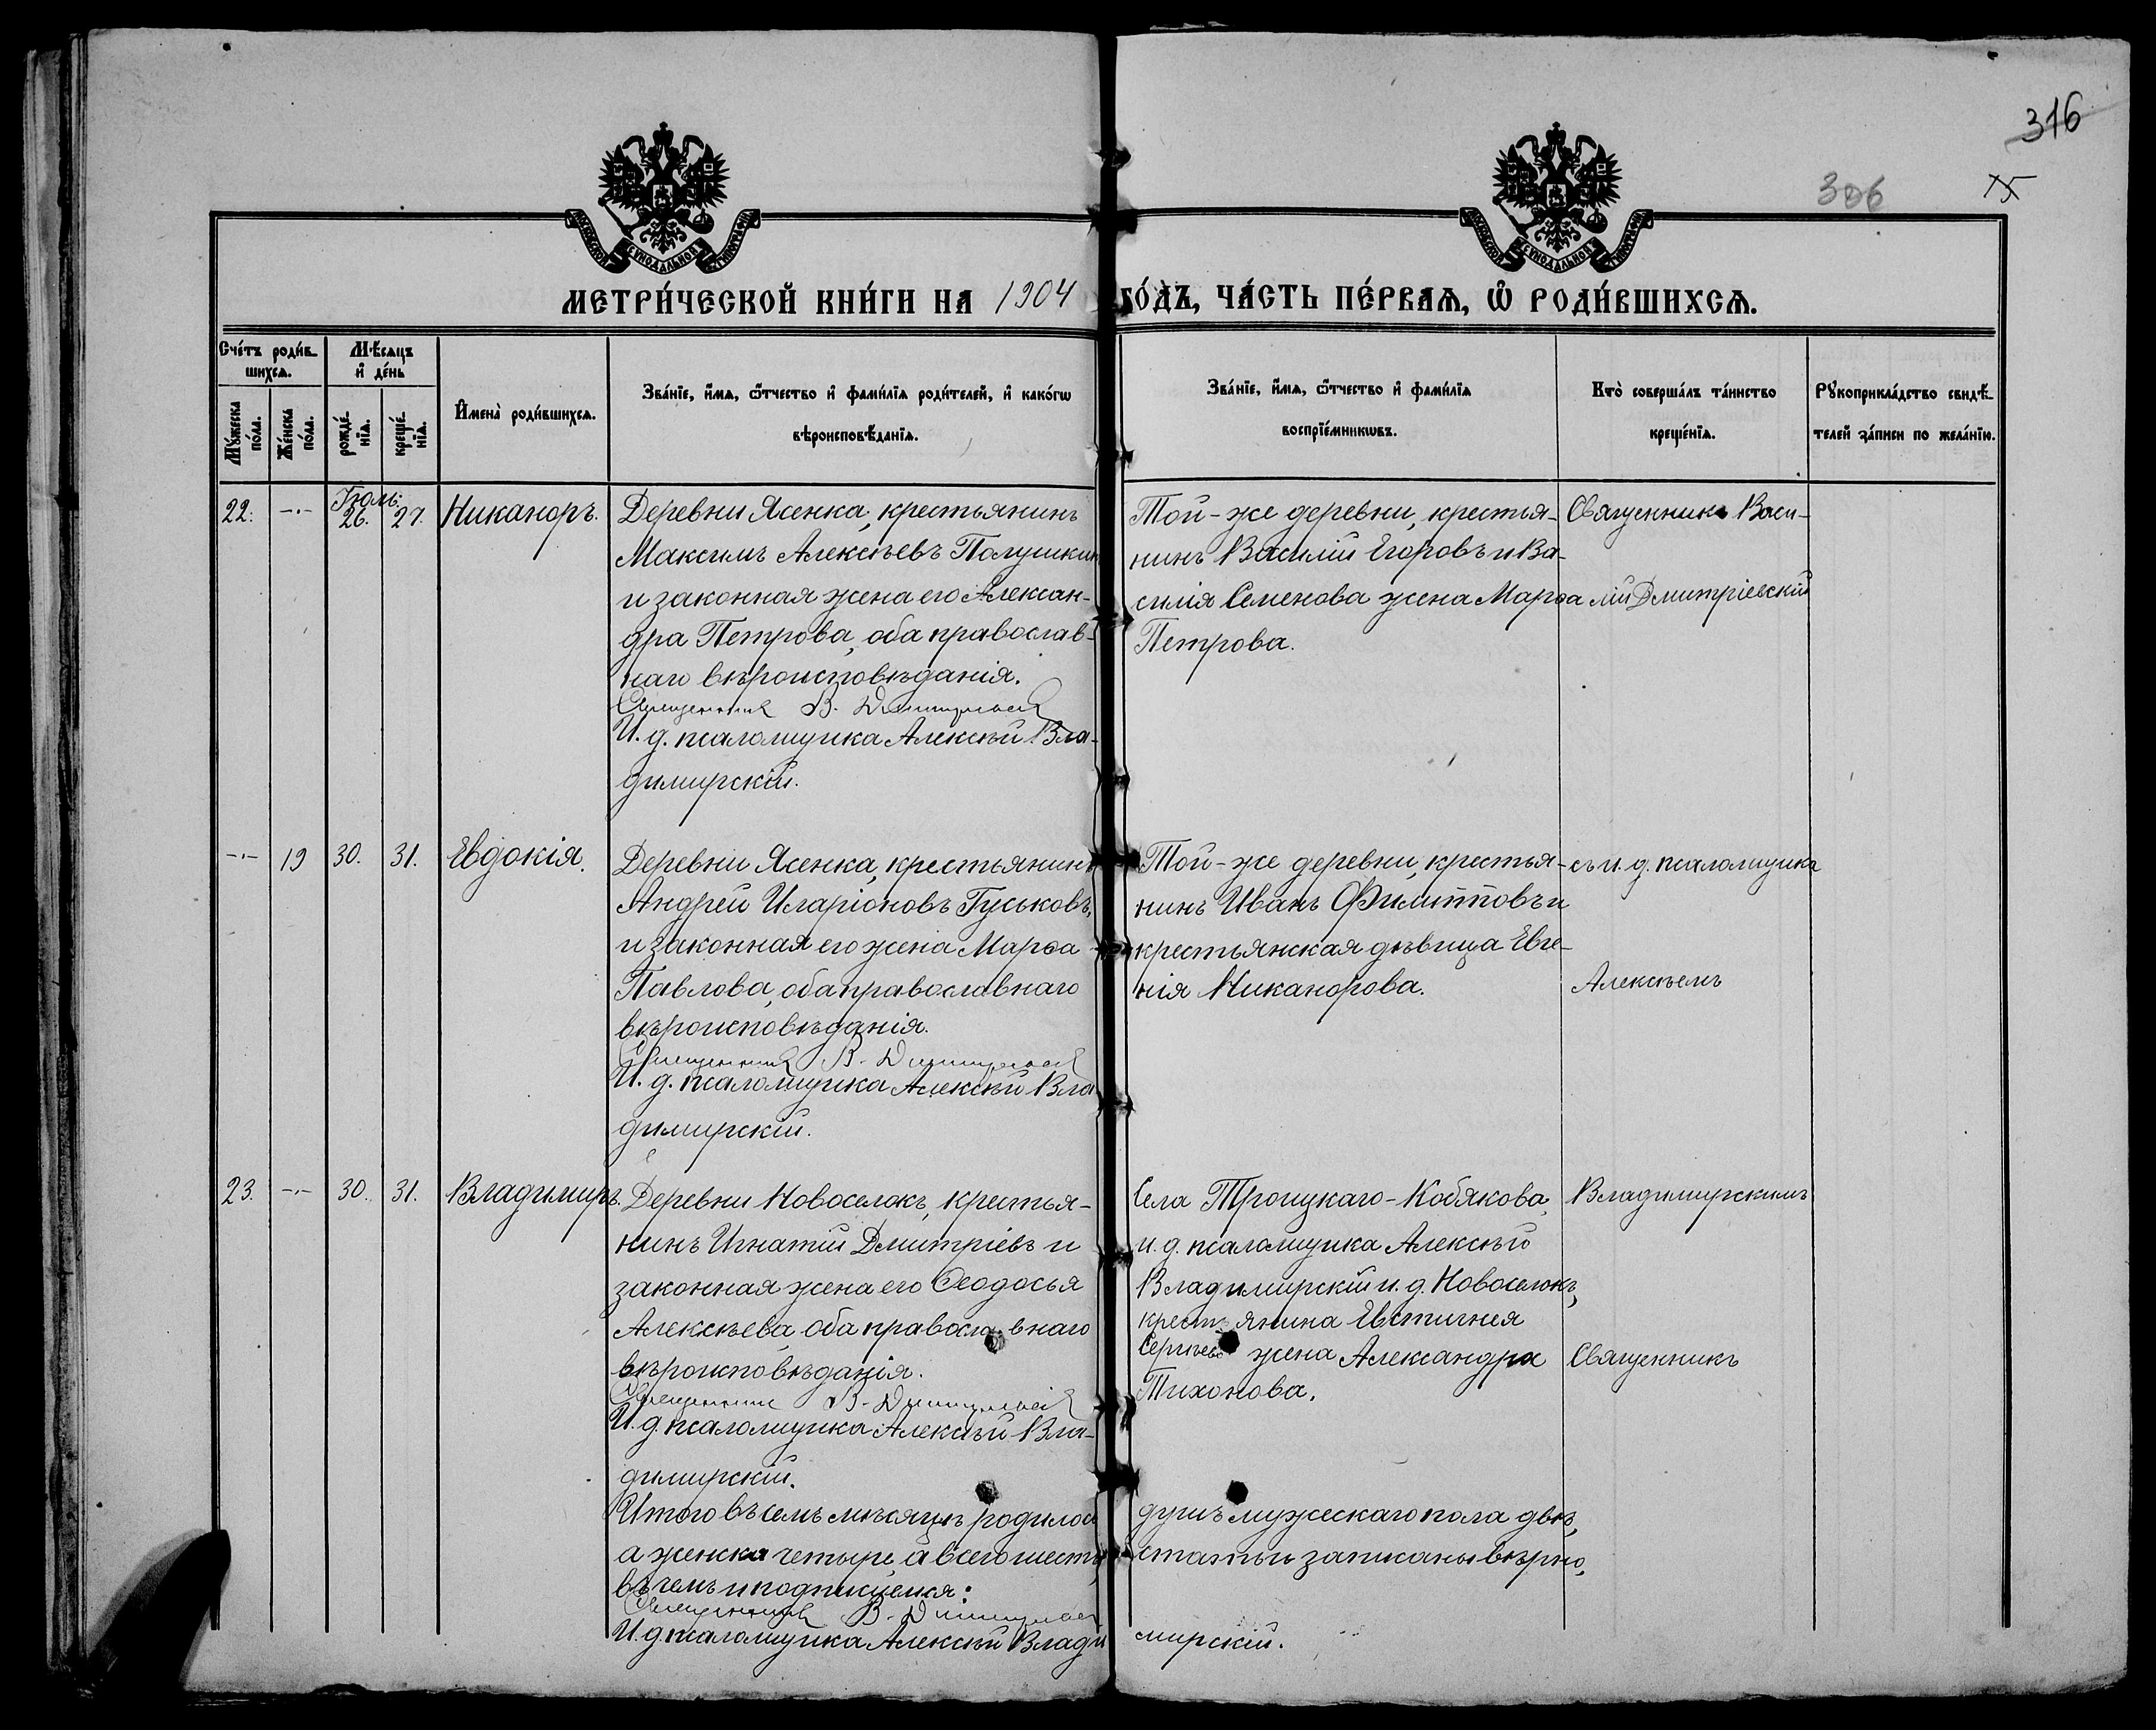 316
306
МОСКОВСКОЙ СѴНОДАЛЬНОЙ ТИПОГРАФІИ
МОСКОВСКОЙ СѴНОДАЛЬНОЙ ТИПОГРАФІИ
МЕТРИ́ЧЕСКОЙ КНИ́ГИ НА 1904 ГО́ДЪ, ЧА́СТЬ ПЕ́РВАѦ, Ѡ҆ РОДИ́ВШИХСѦ.
Сче́тъ роди́в-
шихсѧ.
Мѣ́сѧцъ
и҆ де́нь
Мꙋ́жеска по́ла.
Же́нска по́ла.
рожде́-нїѧ.
креще́-нїѧ.
И҆мена̀ роди́вшихсѧ.
Зва́нїе, и҆́мѧ, ѻ҆́тчество и҆ фами́лїѧ роди́телей, и҆ како́гѡ
вѣроисповѣ́данїѧ.
Зва́нїе, и҆́мѧ, ѻ҆́тчество и҆ фами́лїѧ
воспрїе́мникѡвъ.
Кто̀ соверша́лъ та́инство
креще́нїѧ.
Рꙋкоприкла́дство свидѣ́-
телей за́писи по жела́нїю.
Іюль.
22. -·- 26. 27. Никаноръ.
Деревни Ясенка, крестьянинъ
Максимъ Алексѣевъ Полушкин
и законная жена его Алексан-
дра Петрова, оба православ-
наго вѣроисповѣданія.
Священникъ В. Дмитріевскій
И. д. псаломщика Алексѣй Вла-
димирскій.
Той-же деревни, крестья-
нинъ Василій Егоровъ и Ва-
силія Семенова жена Марѳа
Петрова.
Священникъ Васи-
лій Дмитріевскій
-·- 19 30. 31. Евдокія.
Деревни Ясенка, крестьянинъ
Андрей Иларіоновъ Гуськовъ,
и законная его жена Марѳа
Павлова, оба православнаго
вѣроисповѣданія.
Священникъ В. Дмитріевскій
И. д. псаломщика Алексѣй Вла
димирскій.
Той-же деревни, крестья-
нинъ Иванъ Филипповъ и
крестьянская дѣвица Евге-
нія Никанорова.
съ и. д. псаломщика
Алексѣемъ
23. -·- 30. 31. Владимиръ.
Деревни Новоселокъ, крестья-
нинъ Игнатій Дмитріевъ и
законная жена его Ѳеодосья
Алексѣева, оба православнаго
вѣроисповѣданія.
Священникъ В. Дмитріевскій
И. д. псаломщика Алексѣй Вла-
димирскій.
Села Троицкаго-Кобякова,
и. д. псаломщика Алексѣй
Владимирскій и. д. Новоселокъ,
крестьянина Евстигнея
Сергѣева жена Александра
Тихонова.
Владимирскимъ
Священникъ
Итого въ семъ мѣсяцѣ родилось душъ мужескаго пола двѣ,
а женска четыре, а всего шесть, статьи записаны вѣрно,
въ чемъ и подписуемся:
Священникъ В. Дмитріевскій
И. д. псаломщика Алексѣй Влади мирскій.